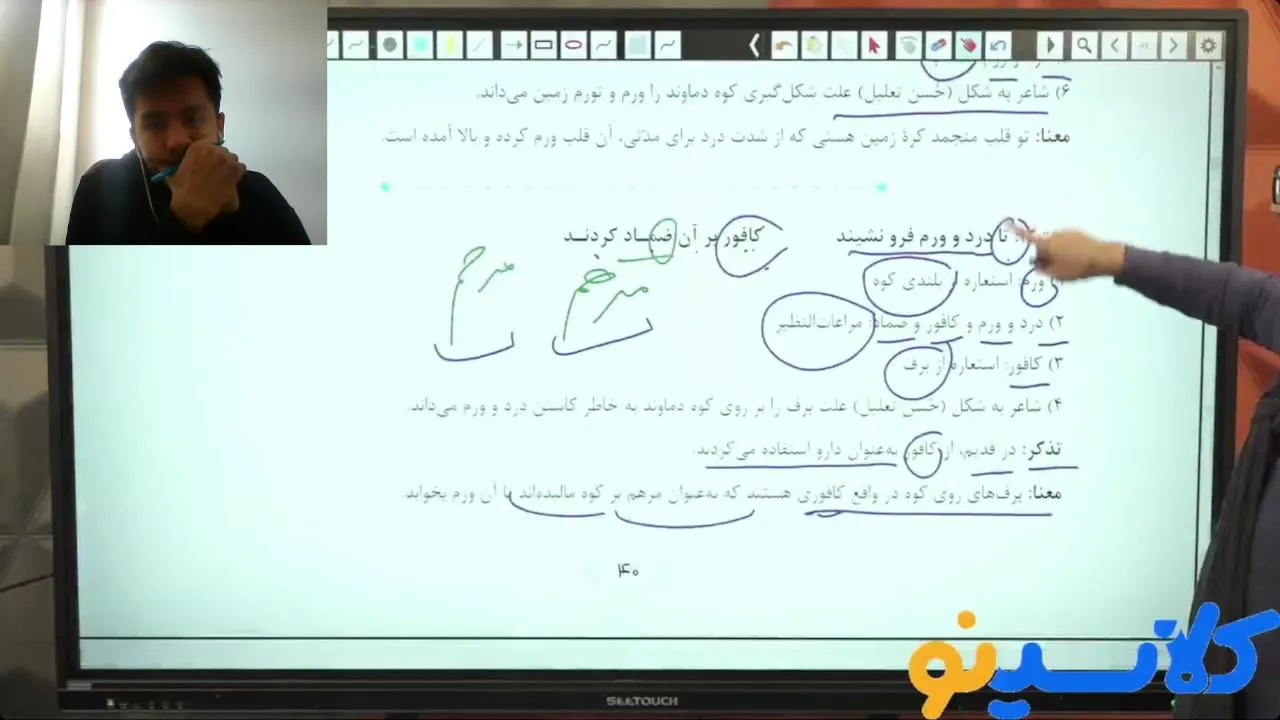 ۶) شاعر به شکل (حُسن تعلیل) علت شکل‌گیری کوه دماوند را ورم و تورم زمین می‌داند.
معنا: تو قلب منجمد کرهٔ زمین هستی که از شدت درد برای مدّتی، آن قلب ورم کرده و بالا آمده است.
تا درد و ورم فرو نشیند کافور بر آن ضماد کردند
ورم: استعاره از بلندی کوه
۲) درد و ورم و کافور و ضماد: مراعات‌النظیر
۳) کافور: استعاره از برف
۴) شاعر به شکل (حُسن تعلیل) علت برف را بر روی کوه دماوند به خاطر کاستن درد و ورم می‌داند.
تذکر: در قدیم، از کافور به‌عنوان دارو استفاده می‌کردند.
معنا: برف‌های روی کوه در واقع کافوری هستند که به‌عنوان مرهم بر کوه مالیده‌اند تا آن ورم بخوابد.
مرهم
۴۰
SEETOUCH
کلاسینو